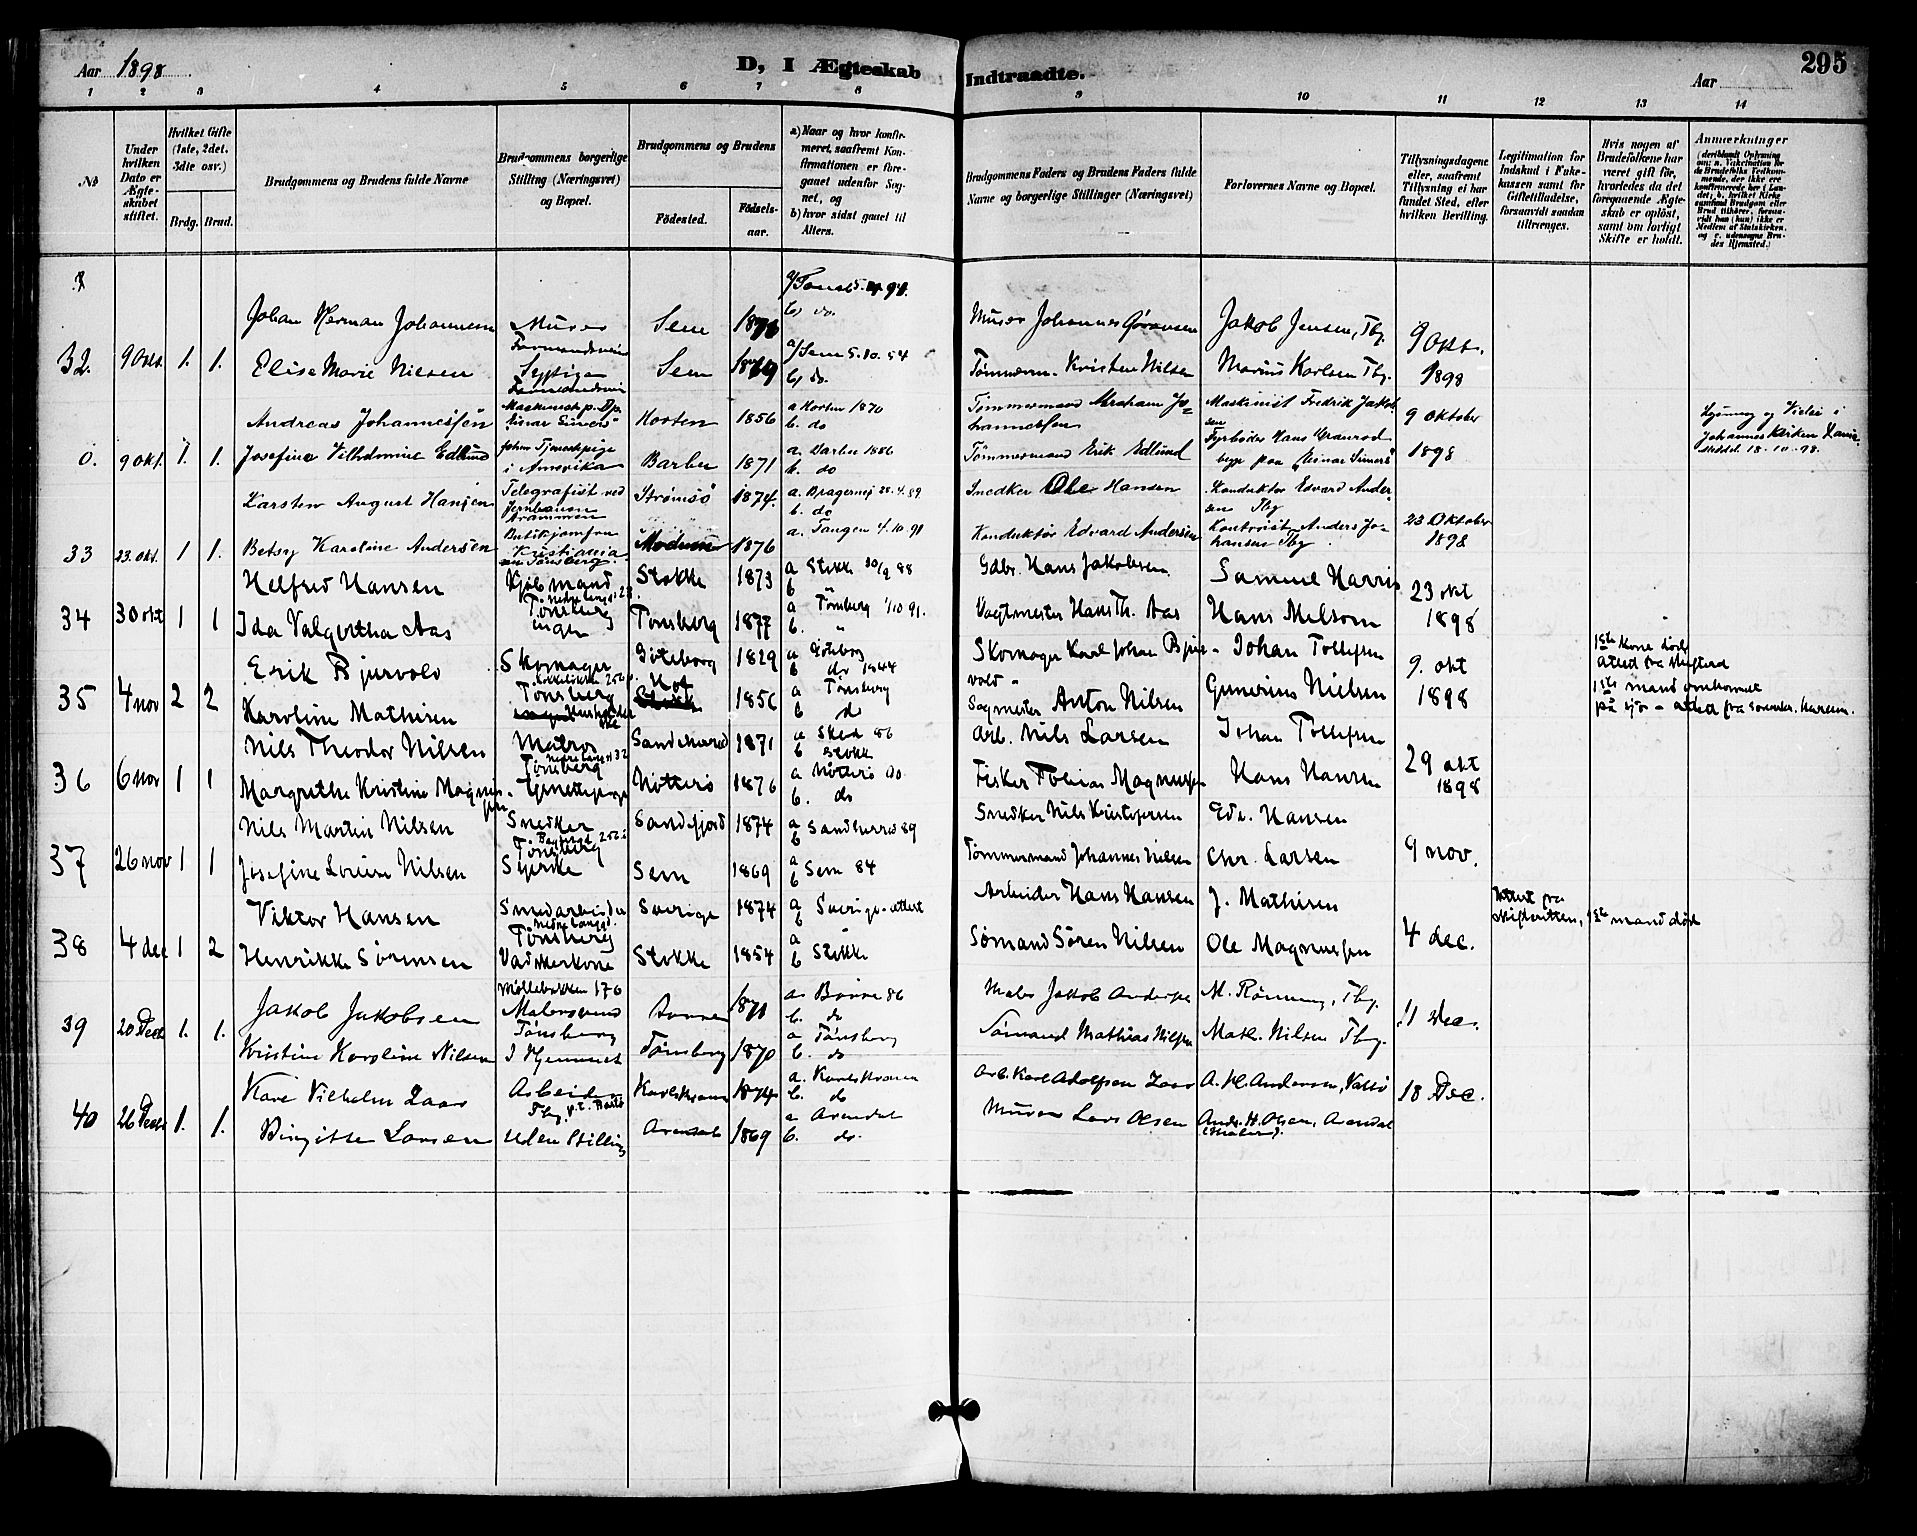 Aar 1898
D, I Ægteskab Indtraadte.
Aar
295
1 2 3 4 5 6 7 8 9 10 11 12 13 14
No
Under hvilken Dato er Ægteskabet stiftet.
Hvilket Gifte (1ste, 2det, 3die osv.)
Brdg. Brud.
Brudgommens og Brudens fulde Navne
Brudgommens borgerlige Stilling (Næringsvei) og Bopæl.
Brudgommens og Brudens
Fødested.
Fødsels-aar.
a) Naar og hvor konfirmeret, saafremt Konfirmationen er foregaaet udenfor Sognet, og
b) hvor sidst gaaet til Alters.
Brudgommens Faders og Brudens Faders fulde Navne og borgerlige Stillinger (Næringsvei)
Forlovernes Navne og Bopæl.
Tillysningsdagene eller, saafremt Tillysning ei har fundet Sted, efter hvilken Bevilling.
Legitimation for Indskud i Enkekassen samt for Giftetilladelse, forsaavidt saadan tiltrænges.
Hvis nogen af Brudefolkene har været gift før, hvorledes da det foregaaende Ægteskab er opløst, samt om lovligt Skifte er holdt.
Anmerkninger
Johan Herman Johannesen Murer Sem b) do. Murer Johannes Gøransen Jakob Jensen, Tbg. 9 Okt.
32. 9 Okt. 1. 1. Elise Marie Nilsen Sypige Sem a/ Sem 5.10.54 b) do. Tømmerm. Kristen Nilsen Marius Karlsen Tbg. 1898
Andreas Johannessen Maskinist p. Dp. "Einar Simers" Horten 1856 a Horten 1870 b. do Tømmermand Abraham Johannessen Maskinist Fredrik Jakobsen 9 Oktober
0. 9 Okt. 1. 1. Josefine Vilhelmine Edlund Tjenestepige i Amerika Barbu 1871 a. Barbu 1886 b. do Tømmermand Erik Edlund Fyrbøder Hans Granrød begge paa "Einar Simers" 1898 Johannes Kirken 18-10-98.
Karsten August Hansen Telegrafist ved Jernbanen Drammen Strømsø 1874. a. Bragernes 28.4.89 b. do Snedker Ole Hansen Konduktør Edvard Andersen Tbg 23 Oktober
33 23. Okt. 1 1. Betsy Karoline Andersen Butikjomfru Kristiania Modum 1876 a. Tangen 4.10.91 Konduktør Edvard Andersen Kontorist Anders Johansen Tbg 1898
Helfred Hansen Kjøbmand Stokke 1873 a Stokke 30/9 88 b Gdbr. Hans Jakobsen Samuel Harris 23 okt
34 30 okt 1 1 Ida Valgertha Aas Tønsberg ingen Tønsberg 1877 a Tønsberg 1/10 91. b. " Vagtmester Hans Th. Aas Hans Melsom 1898
Erik Bjurvold Skomager Göteborg 1829 a Göteborg b do 1844 Skomager Karl Johan Bjurvold Johan Tollefsen 9. okt 1ste kone død attest fra skifteret
35 4 nov 2 2 Karoline Mathisen Tønsberg Husholderske Hof 1856 a Tønsberg b do Sagmester Anton Nilsen Gunerius Nielsen 1898 1ste mand omkommet på sjø - attest fra
Nils Theodor Nilsen Matros Sandeherred 1871 a Sked 86 b Stokke Arb. Nils Larsen Johan Tollefsen 29 okt
36 6 nov 1 1 Margrethe Kristine Magnussen Tønsberg Tjenestepige Nøtterø 1876 a Nøtterø 90 b. do Fisker Tobias Magnussen Hans Hansen 1898
Nils Martin Nilsen Snedker Sandefjord 1874 a Sandherred 89 b Snedker Nils Kristofersen Edv. Hansen
37 26 nov 1 1 Josefine Lovise Nilsen Tønsberg Syerske Sem 1869 a Sem 84 b Tømmermand Johannes Nilsen Chr. Larsen 9 nov.
Viktor Hansen Smedarbeider Sverige 1874 a Sverige - attest b Arbeider Hans Hansen J. Mathisen Attest fra skifteretten, 1ste mand død
38 4 dec 1 2 Henrikke Sørensen Tønsberg Vadskerkone Stokke 1854 a b Stokke Sømand Søren Nilsen Ole Magnussen 4 dec.
Jakob Jakobsen Møllebakken 176 Malersvend 1871 a. Borre 86 b. do Maler Jakob Andersen M. Rønning, Tbg. 11 Dec.
39 20 Decbr 1. 1. Kristine Karoline Nilsen Tønsberg I Hjemmet Tønsberg 1870 a Tønsberg b. do Sømand Mathias Nilsen Math. Nilsen Tbg.
Kare Vilhelm Zaar Arbeider Tbg. Karlskrona 1874 a. Karlskrona b. do Arb. Karl Adolfsen Zaar A. H. Andersen, Vallø 18 Dec.
40 26 Decbr 1. 1. Birgitte Larsen Uden Stilling Arendal 1869 a Arendal b. do. Murer Lars Olsen Andr. H. Olsen, Arendal (Maler).